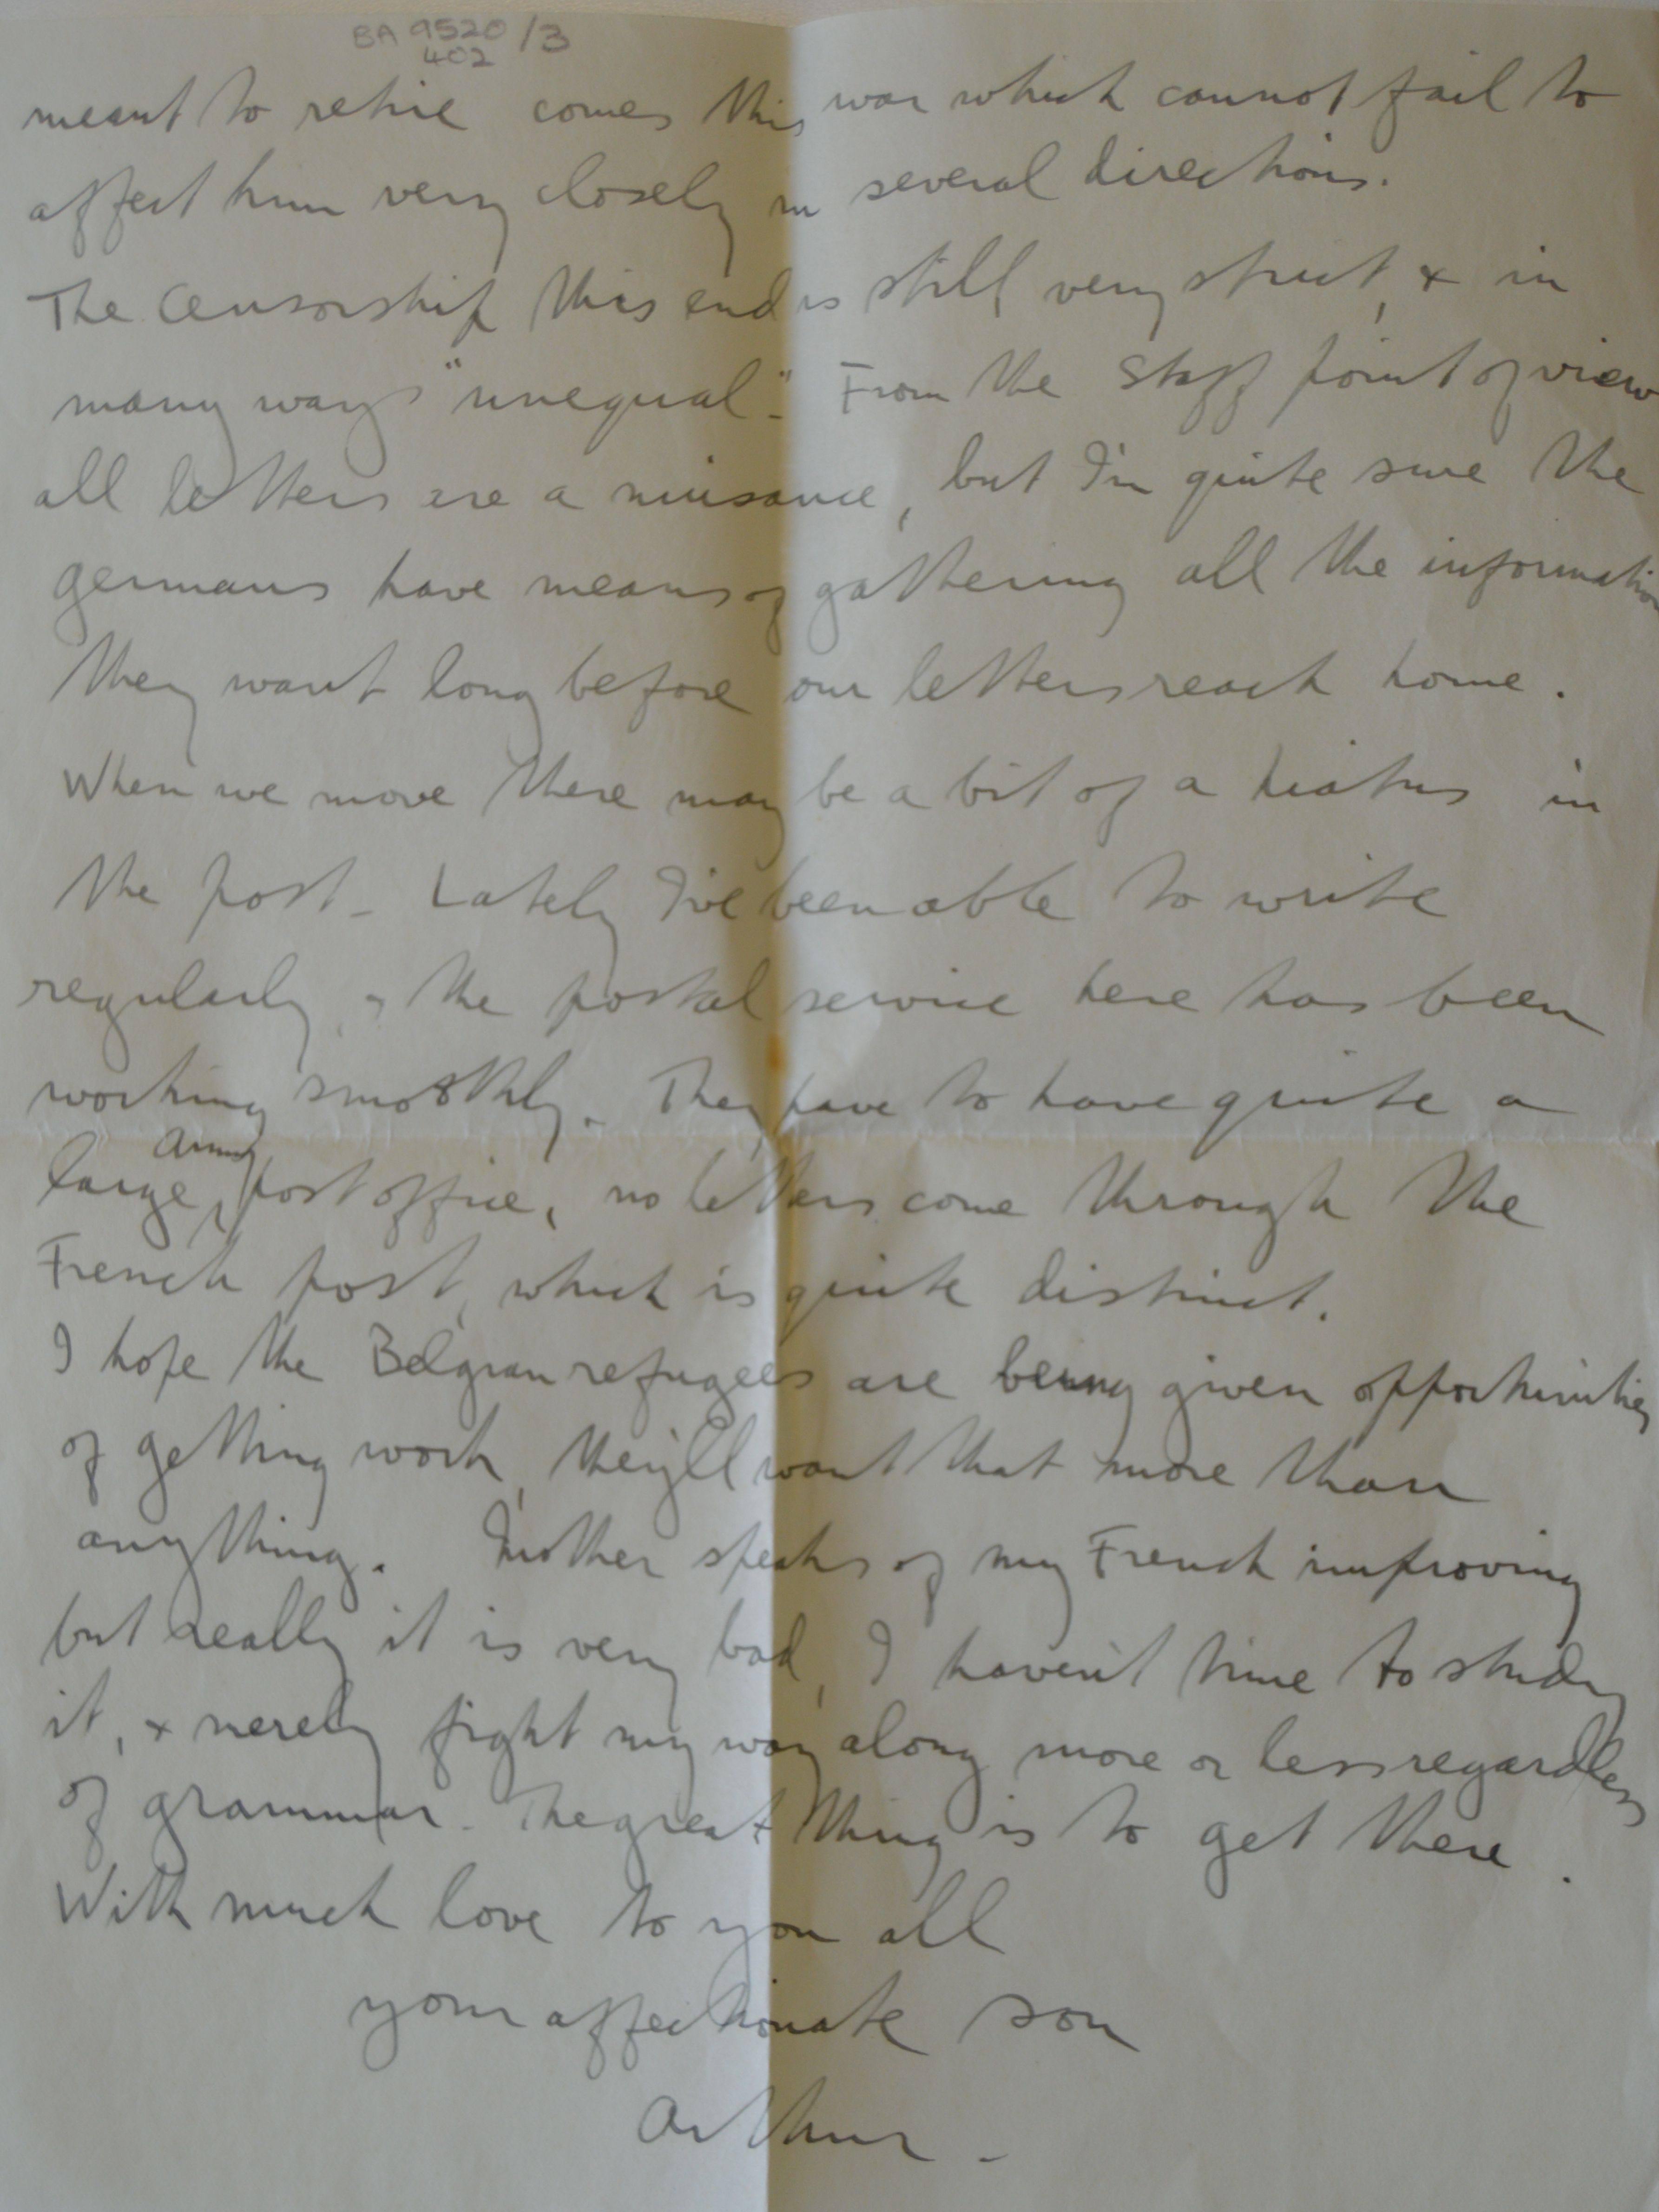 BA 9520/3
402
meant to retire comes this war which cannot fail to
affect him very closely in several directions.
The Censorship this end is still very strict, & in
many ways "unequal". From the Staff point of view
all letters are a nuisance, but I'm quite sure the
germans have means of gathering all the information
they want long before our letters reach home.
When we move there may be a bit of a hiatus in
the post - Lately I've been able to write
regularly, & the postal service here has been
working smoothly. They have to have quite a
large Army post office, no letters come through the
French post, which is quite distinct.
I hope the Belgian refugees are being given opportunities
of getting work, they'll want that more than
anything. Mother speaks of my French improving
but really it is very bad, I haven't time to study
it, & merely fight my way along more or less regardless
of grammar. The great thing is to get there.
With much love to you all
your affectionate son
Arthur -